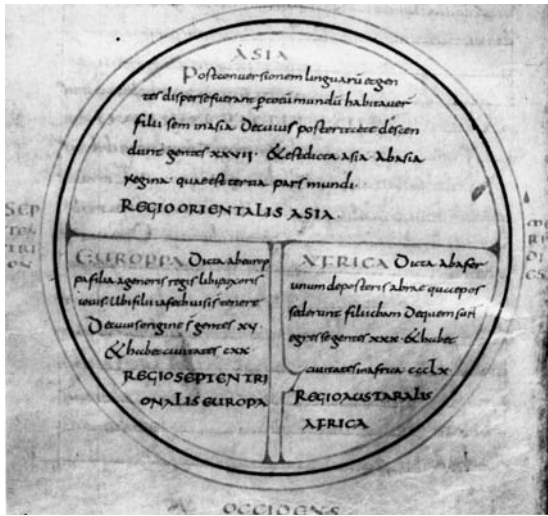 ASIA
Post conversionem linguarū et gen
tes disperse fuerant p totū mundū habitaver
filii sem in asia De cuius posteritate descen
dunt gentes xxvii · & est dicta asia ab asia
regina quae est tertia pars mundi
REGIO ORIENTALIS ASIA.
SEP
TEN
TRI
ON
EUROPPA Dicta ab europ
pa filia agenoris regis libiae uxoris
iovis. Ubi filii iafeth visi s tenere
De cuius origine s gentes xv
& habet civitates cxx
REGIO SEPTENTRI
ONALIS EUROPA
AFRICA Dicta ab afer
unum de posteris abrae pos
sederunt filii cham De quem sunt
egresse gentes xxx · & habet
civitates in africa ccclx
REGIO AUSTARALIS
AFRICA
ME
RI
DI
ES
OCCIDENS